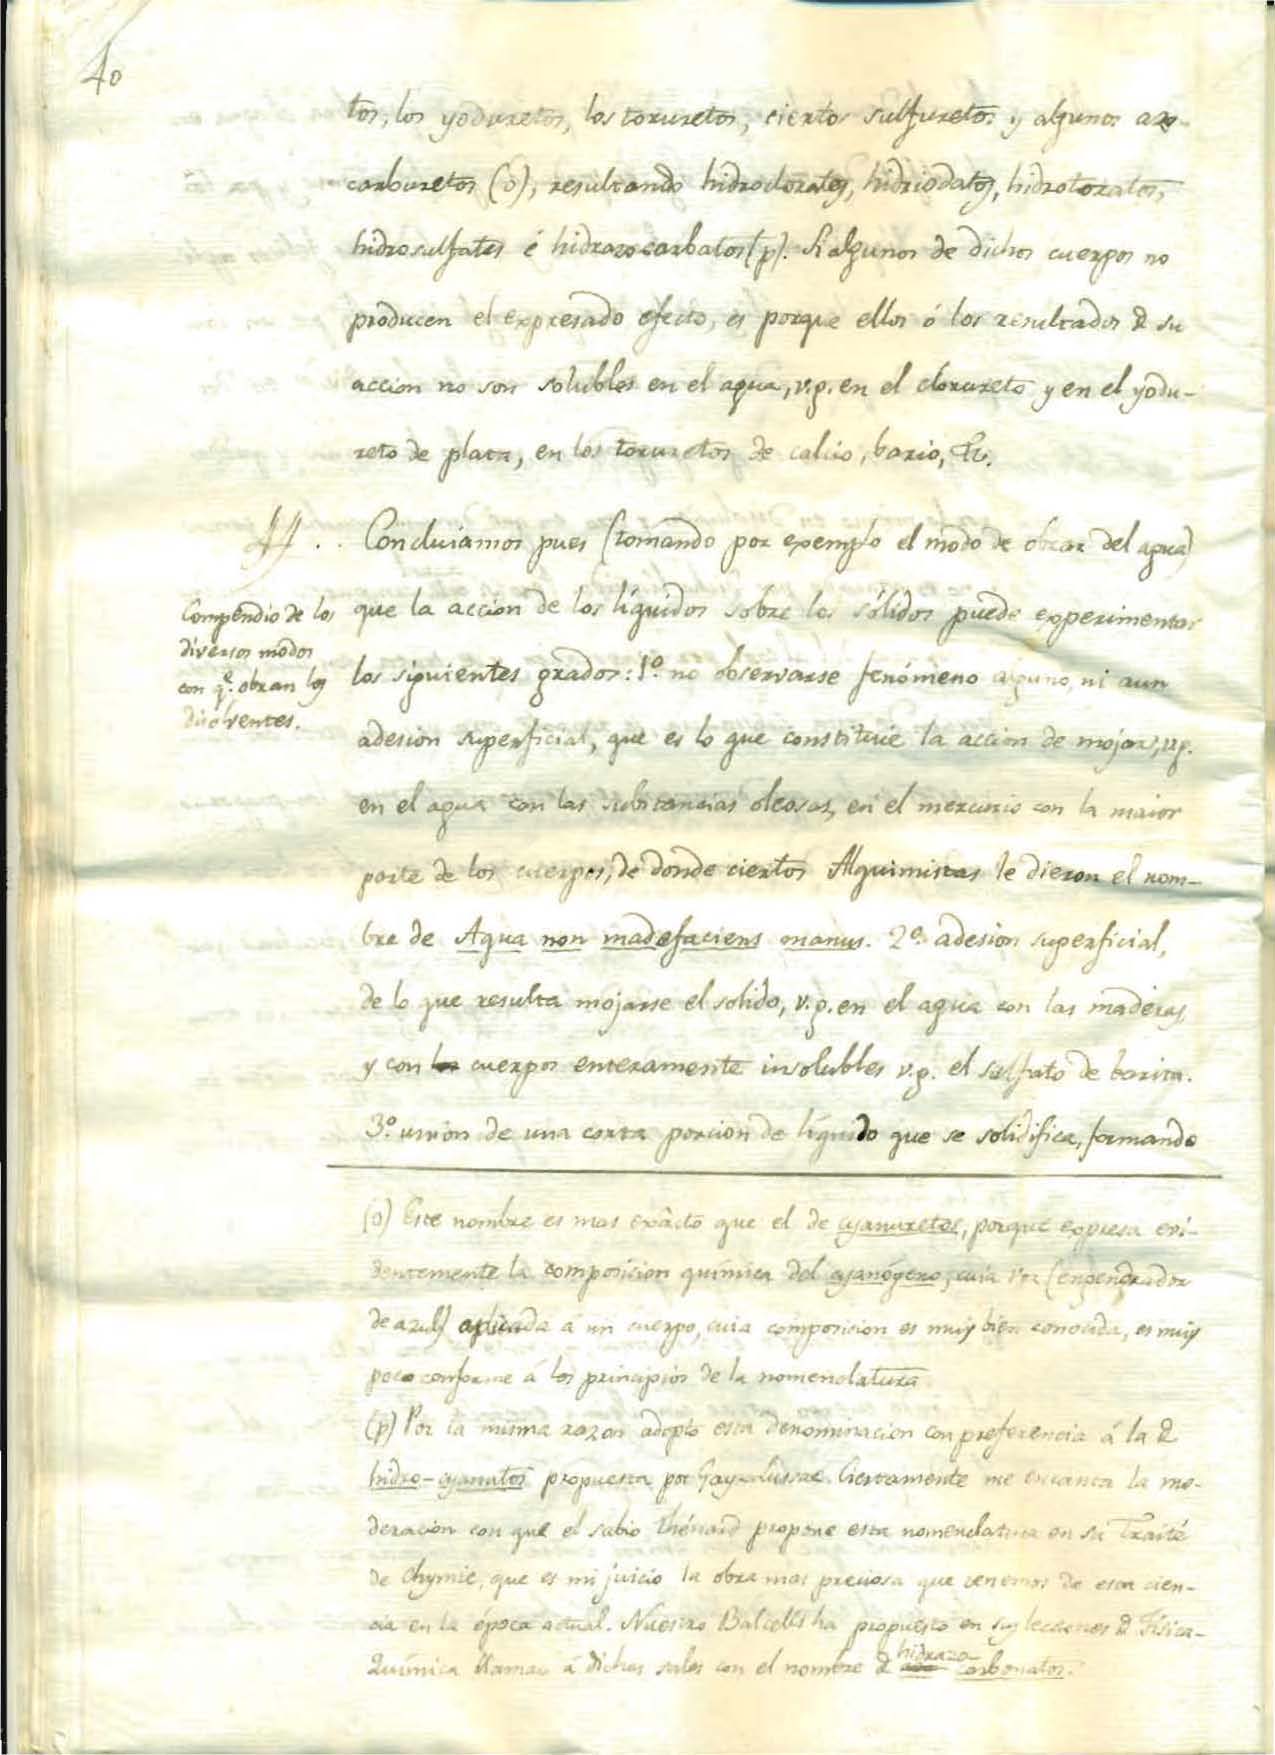 40
tos, los yoduretos, los toruretos, ciertos sulfuretos y algunos azo-
carburetos (o), resultando hidrocloratos, hidriodatos, hidrotoratos,
hidrosulfates é hidrazocarbatos (p). Si algunos de dichos cuerpos no
producen el expresado efecto, es porque ellos ó los resultados d su
accion no son solubles en el agua, v.g. en el clorureto y en el yodu-
reto de plata, en los toruretos de calcio, bario, &c.
44 . . Concluiamos pues (tomando por exemplo el modo de obrar del agua)
que la accion de los líquidos sobre los sólidos puede experimentar
los siguientes grados: 1º. no observarse fenómeno alguno, ni aun
adesion superficial, que es lo que constituie la accion de mojar, v.g.
en el agua con las substancias oleosas, en el mercurio con la maior
parte de los cuerpos, de donde ciertos Alquimistas le dieron el nom-
bre de Aqua non madefaciens manus. 2º. adesion superficial,
de lo que resulta mojarse el solido, v.g. en el agua con las maderas,
y con los cuerpos enteramente insolubles v.g. el sulfato de barita.
3º. union de una corta porcion de líquido que se solidifica, formando
Compendio de los
diversos modos
con qe. obran los
disolventes.
(o) Este nombre es mas exâcto que el de cyanuretos, porque expresa evi-
dentemente la composicion química del cyanógeno, cuia voz (engendrador
de azul) aplicada á un cuerpo, cuia composicion es muy bien conocida, es muy
poco conforme á los principios de la nomenclatura
(p) Por la misma razon adopto esta denominacion con preferencia á la d
hidro-cyanatos propuesta por Gay-Lussac. Ciertamente me encanta la mo-
deracion con que el sabio Thénard propone esta nomenclatura en su Traité
de Chymie, que es mi juicio la obra mas preciosa que tenemos de esta cien-
cia en la época actual. Nuestro Balcells ha propuesto en sus lecciones d Física-
Química llamar á dichas sales con el nombre d hidrazo-carbonatos.